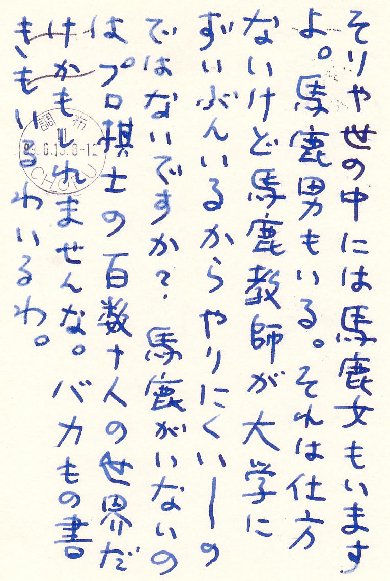 そりゃ世の中には馬鹿女もいます
よ。馬鹿男もいる。それは仕方
ないけど馬鹿教師が大学に
ずいぶんいるからやりにくいーの
ではないですか? 馬鹿がいないの
は、プロ棋士の百数十人の世界だ
けかもしれませんな。バカもの書
きもいるわいるわ。
CHOFU